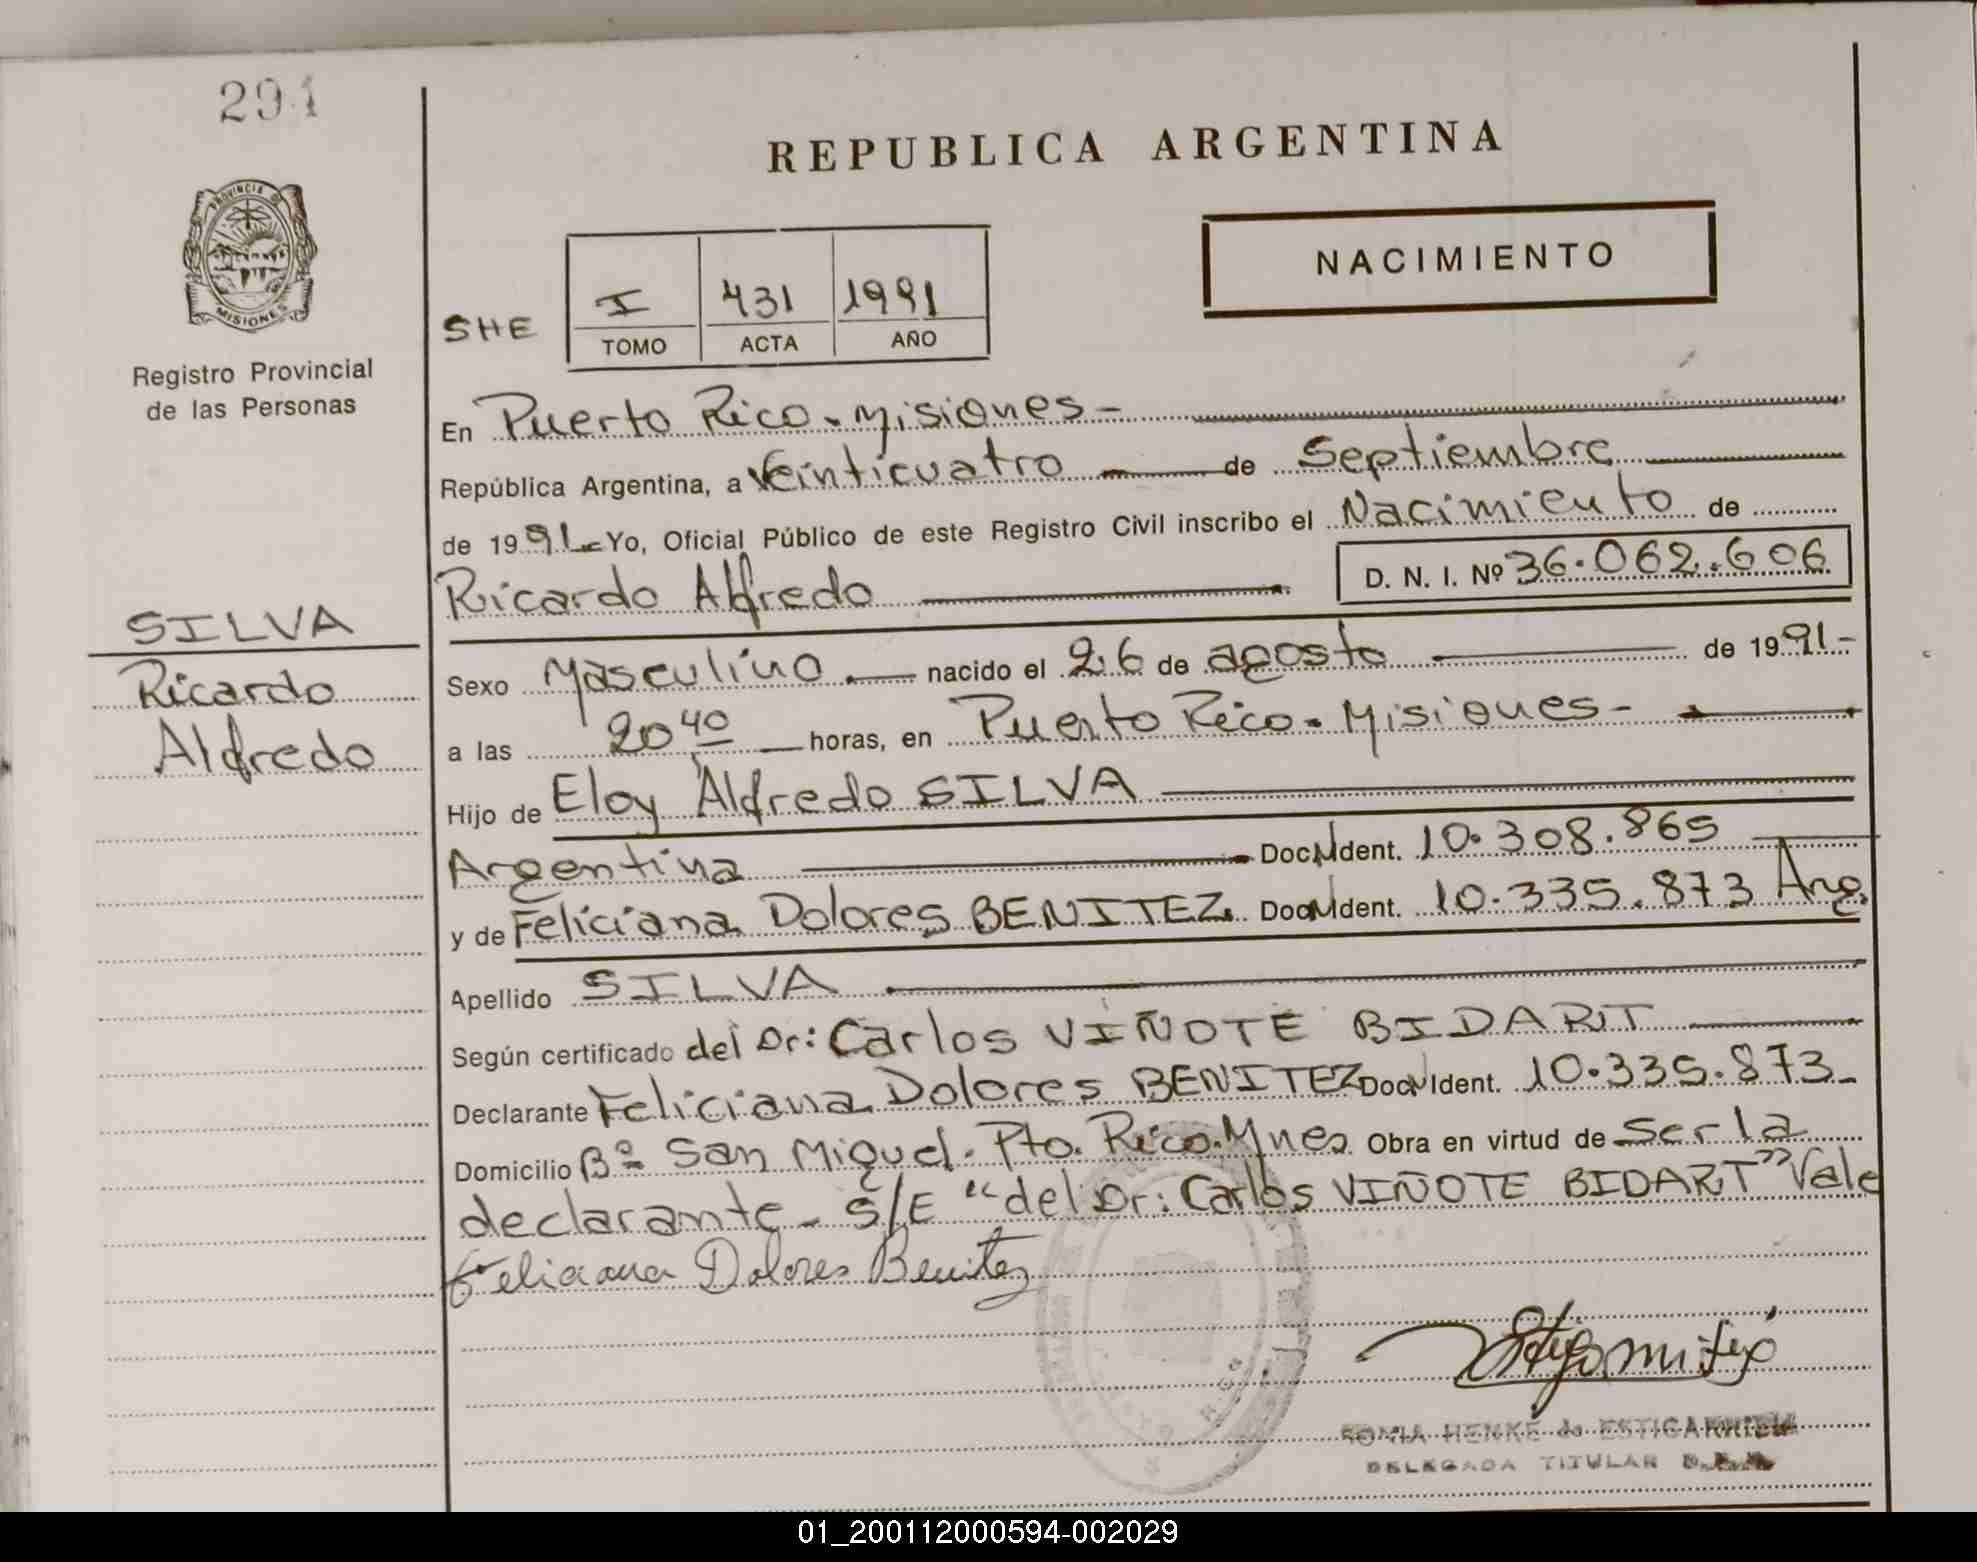 291
REPUBLICA ARGENTINA
NACIMIENTO
PROVINCIA DE
MISIONES
Registro Provincial
de las Personas
SHE
I 431 1991
TOMO ACTA AÑO
En Puerto Rico - Misiones -
República Argentina, a Veinticuatro de Septiembre
de 1991 - Yo, Oficial Público de este Registro Civil inscribo el Nacimiento de
Ricardo Alfredo D. N. I. Nº 36.062.606
SILVA
Ricardo
Alfredo
Sexo Masculino nacido el 26 de agosto de 1991-
a las 20 40 horas, en Puerto Rico - Misiones -
Hijo de Eloy Alfredo SILVA
Argentina Doc. Ident. 10.308.865
y de Feliciana Dolores BENITEZ. Doc. Ident. 10.335.873 Arg.
Apellido SILVA
Según certificado del Dr: Carlos VIÑOTE BIDART
Declarante Feliciana Dolores BENITEZ Doc. Ident. 10.335.873-
Domicilio Bº San Miguel. Pto. Rico. Mnes Obra en virtud de Ser la
declarante - S/E "del Dr: Carlos VIÑOTE BIDART" Vale
Feliciana Dolores Benitez
SONIA HENKE de ESTIGARRIBIA
DELEGADA TITULAR
01_200112000594-002029